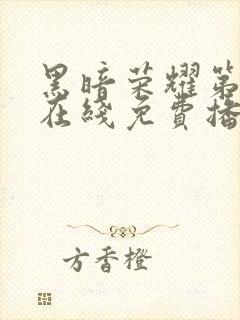 黑暗荣耀第
在线免费播
方香橙